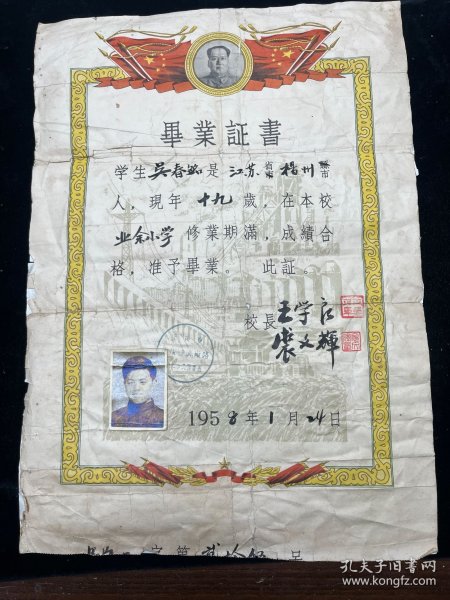 畢業証書
学生吴春 是江苏省市揚州縣市
人，現年十九歲，在本校
业余小学修業期滿，成績合
格，准予畢業。此証。
校長王学良
裴文輝
1958年1月24日
字第 号
孔夫子旧书网
www.kongfz.com